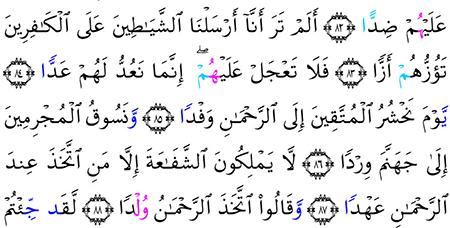 عَلَيْهِمْ ضِدًّا ﴿٨٢﴾ أَلَمْ تَرَ أَنَّآ أَرْسَلْنَا ٱلشَّيَـٰطِينَ عَلَى ٱلْكَـٰفِرِينَ
تَؤُزُّهُمْ أَزًّا ﴿٨٣﴾ فَلَا تَعْجَلْ عَلَيْهِمْ ۖ إِنَّمَا نَعُدُّ لَهُمْ عَدًّا ﴿٨٤﴾
يَوْمَ نَحْشُرُ ٱلْمُتَّقِينَ إِلَى ٱلرَّحْمَـٰنِ وَفْدًا ﴿٨٥﴾ وَنَسُوقُ ٱلْمُجْرِمِينَ
إِلَىٰ جَهَنَّمَ وِرْدًا ﴿٨٦﴾ لَّا يَمْلِكُونَ ٱلشَّفَـٰعَةَ إِلَّا مَنِ ٱتَّخَذَ عِندَ
ٱلرَّحْمَـٰنِ عَهْدًا ﴿٨٧﴾ وَقَالُوا۟ ٱتَّخَذَ ٱلرَّحْمَـٰنُ وُلْدًا ﴿٨٨﴾ لَّقَد جِّئْتُمْ